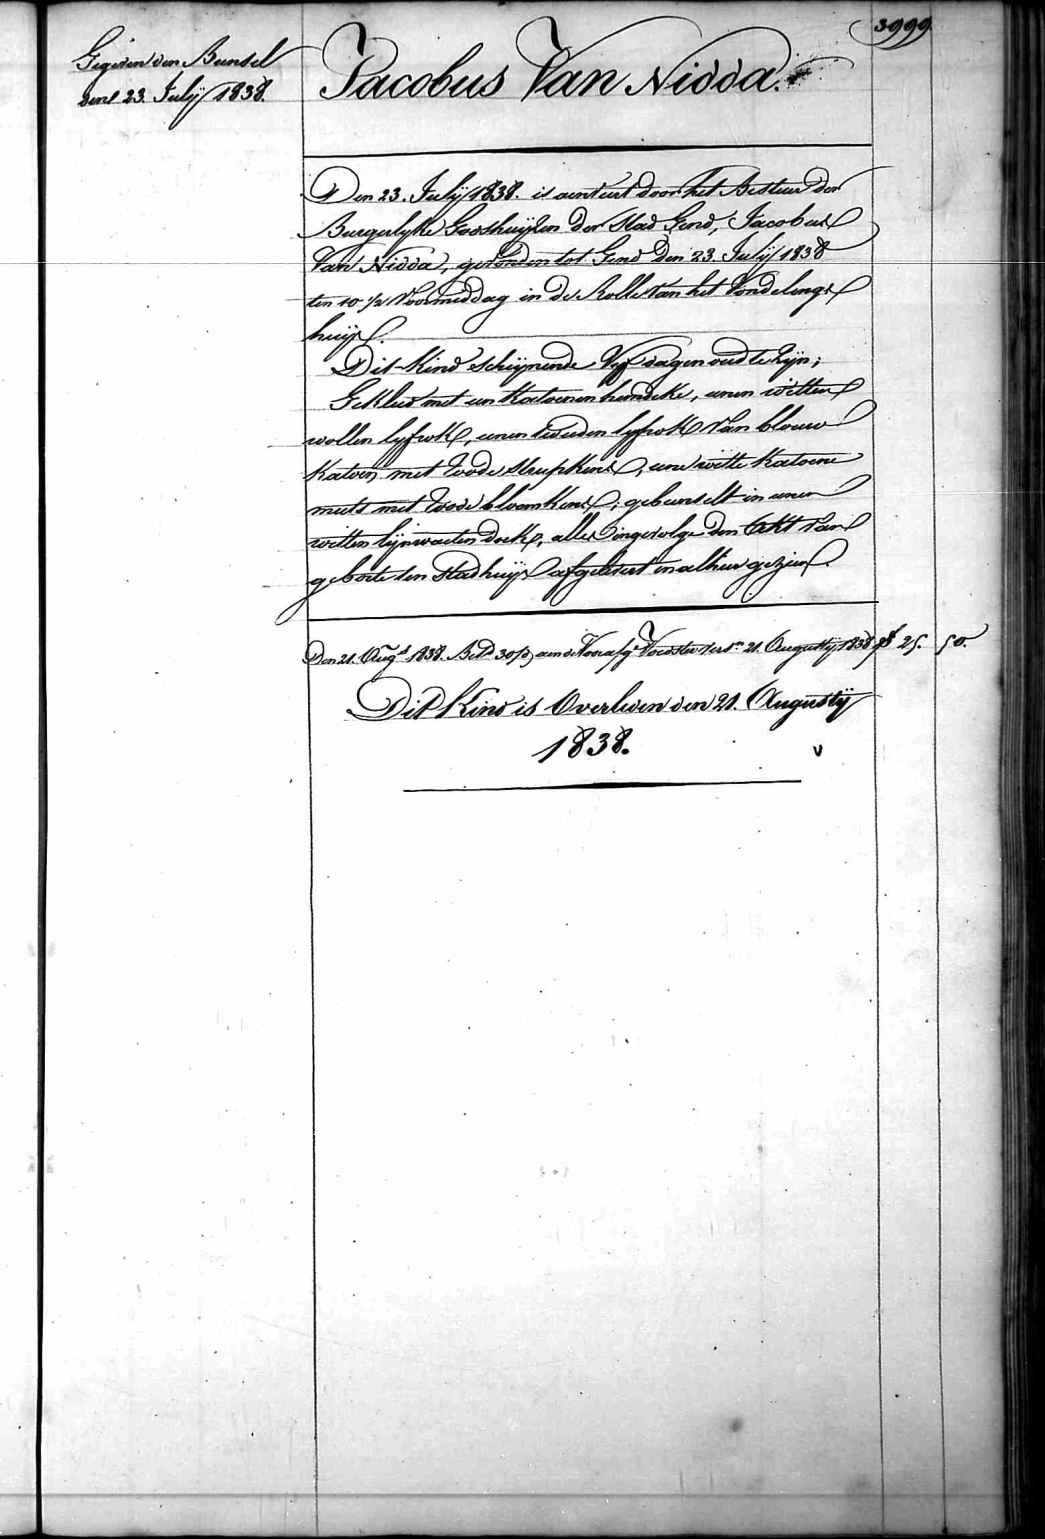 3999
Gegeven den Bunsel
den 23. July 1838.
Jacobus Van Nidda.
Den 23. July 1838. is aenveirt door het Bestuer der
Burgerlyke Godshuijzen der Stad Gend, Jacobus
Van Nidda, gevonden tot Gend den 23. July 1838
ten 10 1/2 Voormiddag in de Rolle van het Vondelings
huijs.
Dit Kind schijnende Vyf dagen oud te zijn;
Gekleed met een Katoenen hemdeke, eenen witten
wollen lyfrok, eenen tweeden lyfrok van blouw
Katoen met roode streepkens, eene witte Katoene
muts met roode bloemkens, gebunselt in eenen
witten lijnwaeten doek, alles ingevolge den Akt van
geboorte ten Stadhuijse afgelevert en alhier gezien.
Den 21. Augt 1838. Betd aen de Voedster 21. Augusty 1838 25. 50.
Dit Kind is Overleden den 21. Augusty
1838.